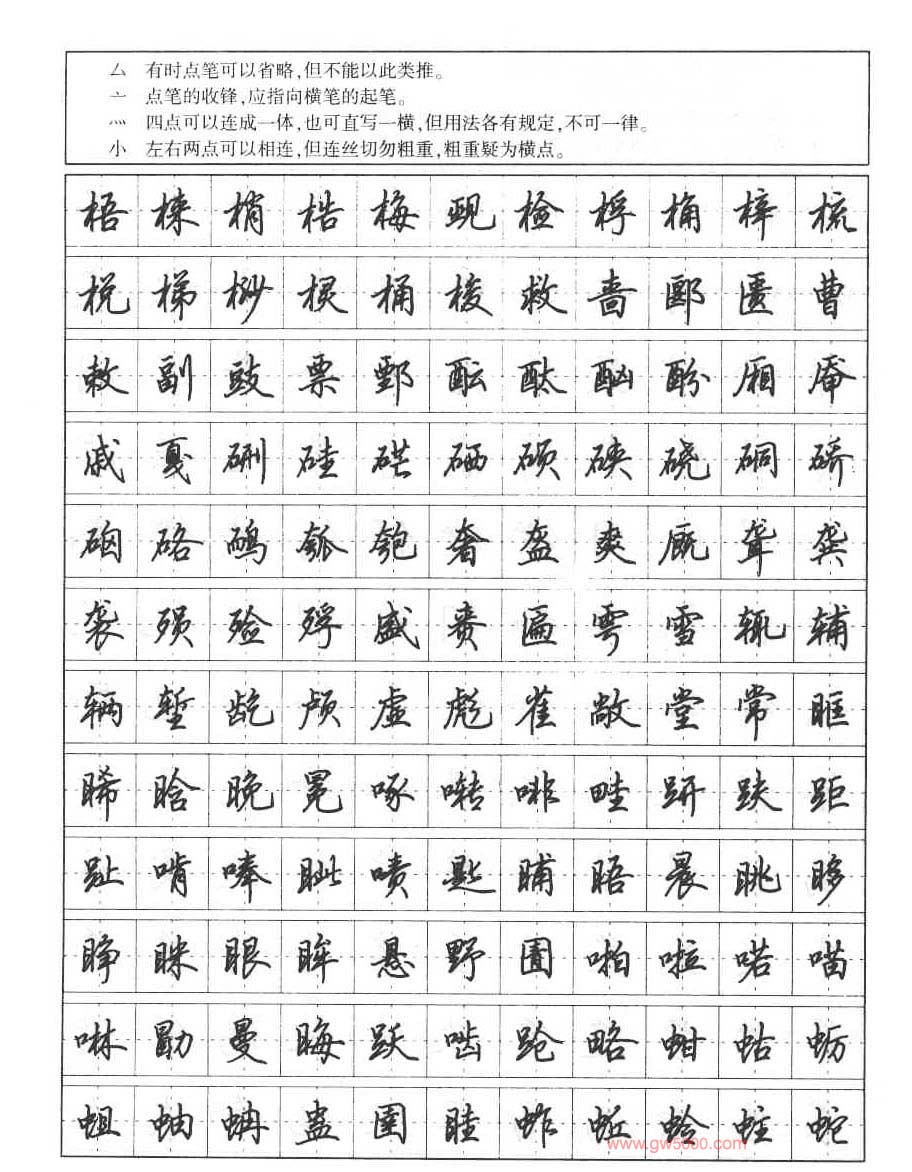 厶 有时点笔可以省略,但不能以此类推。
亠 点笔的收锋,应指向横笔的起笔。
灬 四点可以连成一体,也可直写一横,但用法各有规定,不可一律。
小 左右两点可以相连,但连丝切勿粗重,粗重疑为横点。
梧 梾 梢 梏 梅 觋 检 桴 桷 梓 梳
棁 梯 桫 棂 桶 梭 救 啬 郾 匮 曹
敕 副 豉 票 鄄 酝 酞 酗 酚 厢
戚 戛 硎 硅 硭 硒 硕 硖 硗 硐 硚
硇 硌 鸸 瓠 匏 奢 盔 爽 厩 聋 龚
袭 殒 殓 殍 盛 赉 匾 雩 雪 辄 辅
辆 堑 龁 颅 虚 彪 雀 敞 堂 常 眶
晞 晗 晚 冕 啄 啭 啡 畦 趼 趺 距
趾 啃 唪 眦 啧 匙 晡 晤 晨 眺 眵
睁 眯 眼 眸 悬 野 圊 啪 啦 喏 喵
啉 勖 曼 晦 跃 啮 跄 略 蚶 蛄 蛎
蛆 蚰 蚺 蛊 圉 眭 蚱 蚯 蛉 蛀 蛇
www.gw5000.com